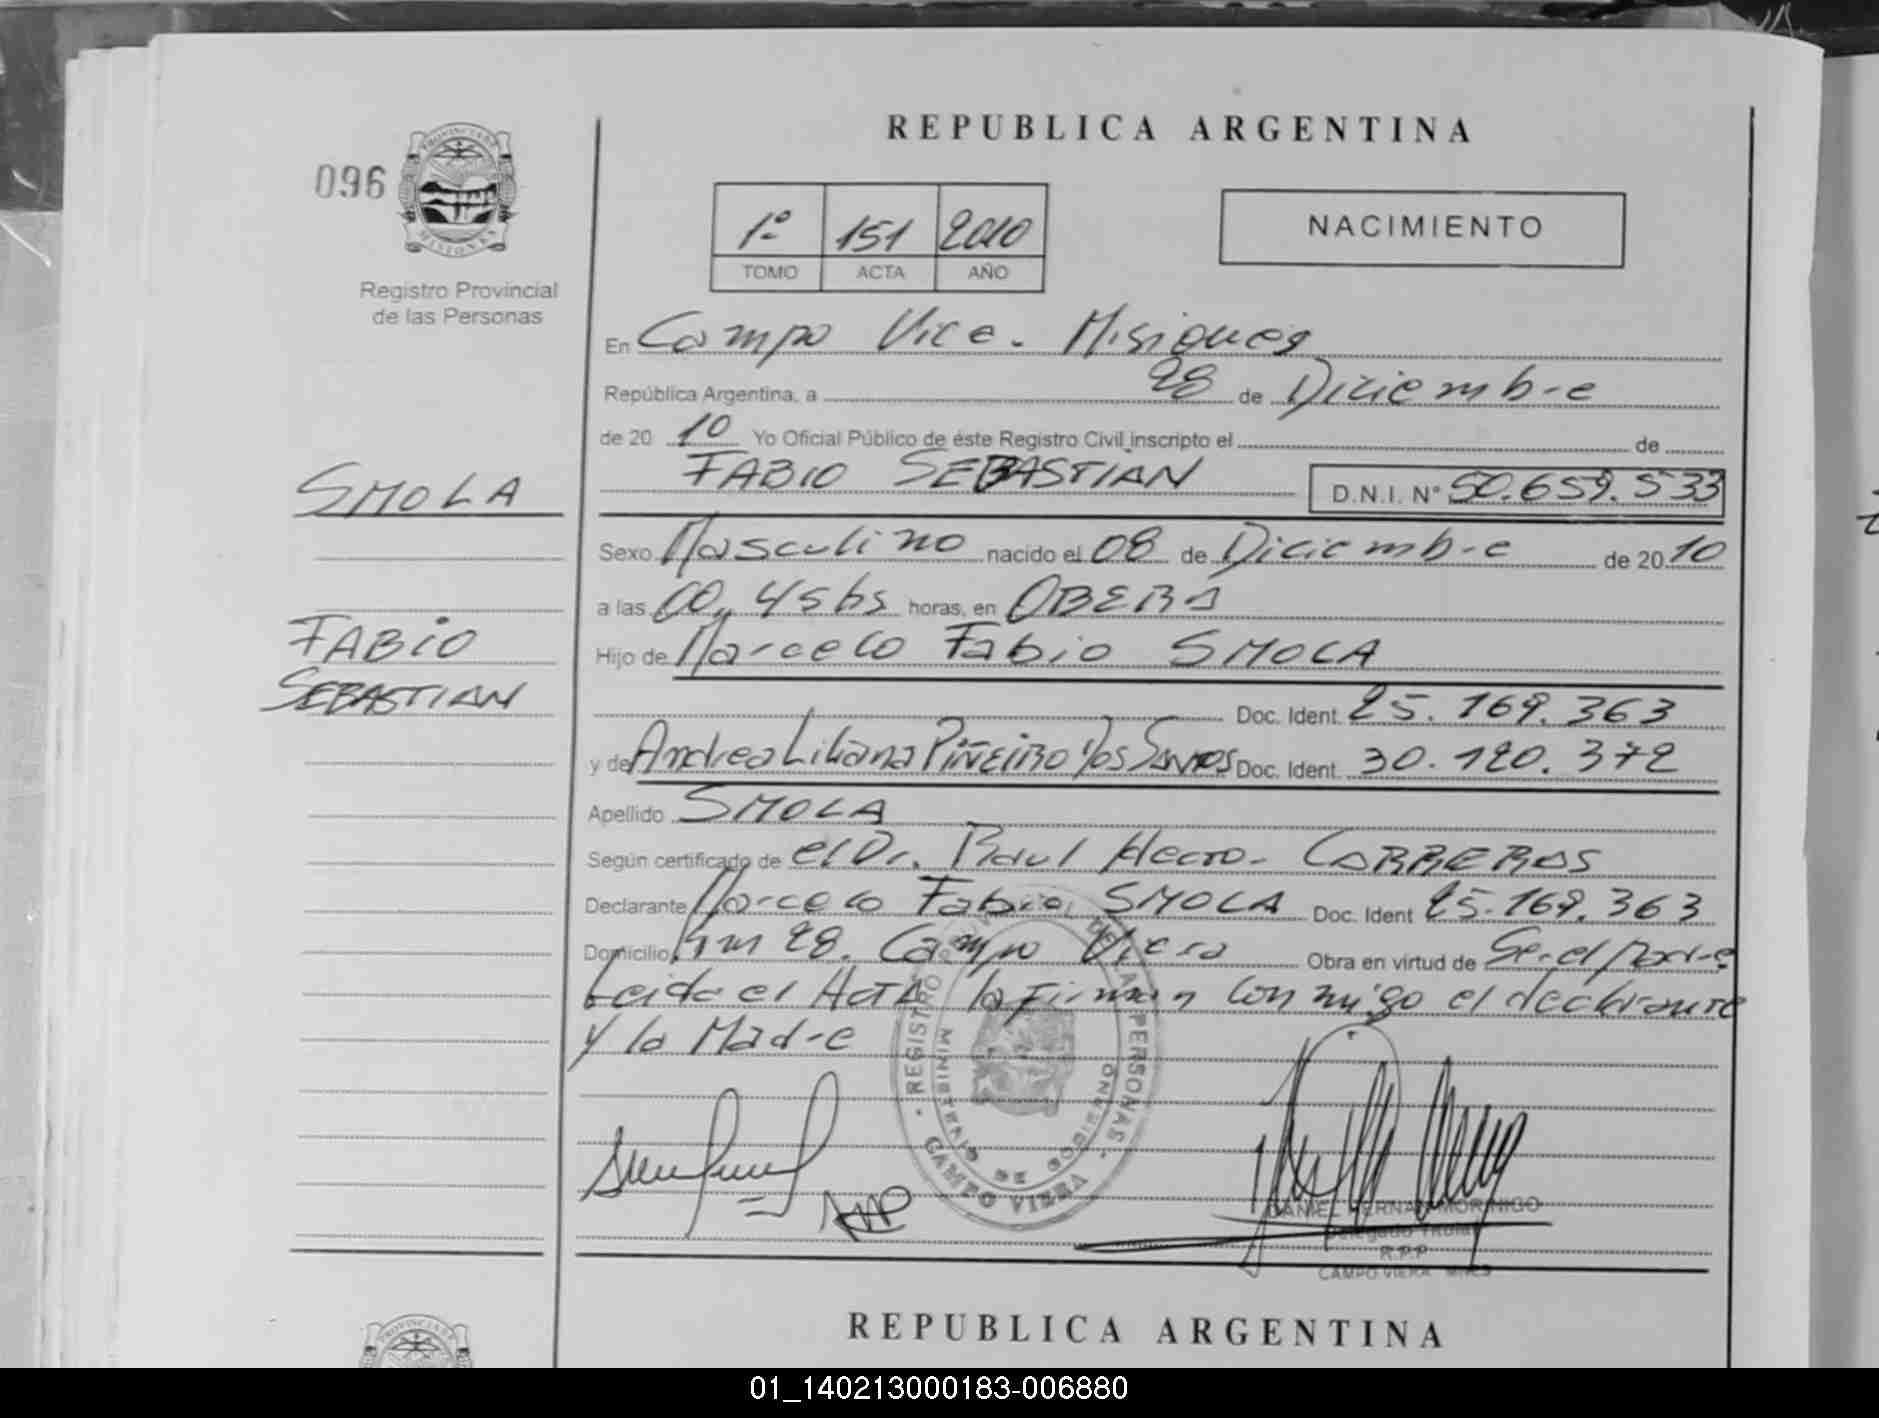 096
PROVINCIA DE
MISIONES
Registro Provincial
de las Personas
REPUBLICA ARGENTINA
1º 151 2010
TOMO ACTA AÑO
NACIMIENTO
En Campo Viera. Misiones
República Argentina, a 28 de Diciembre
de 20 10 Yo Oficial Público de éste Registro Civil inscripto el de
SMOLA
FABIO SEBASTIAN D.N.I. Nº 50.659.533
Sexo Masculino nacido el 08 de Diciembre de 20 10
a las 00,45 hs horas, en OBERA
FABIO
SEBASTIAN
Hijo de Marcelo Fabio SMOLA
Doc. Ident. 25.169.363
y de Andrea Liliana PIÑEIRO Dos Santos Doc. Ident. 30.120.372
Apellido SMOLA
Según certificado de el Dr. Raul Hector CARRERAS
Declarante Marcelo Fabio SMOLA Doc. Ident 25.169.363
Domicilio Km 28. Campo Viera Obra en virtud de Ser el Padre
Leida el Acta la firman conmigo el declarante
y la Madre
REGISTRO DE LAS PERSONAS
MINISTERIO DE GOBIERNO
CAMPO VIERA
DANIEL HERNAN MORINIGO
Delegado Titular
R.P.P
CAMPO VIERA
REPUBLICA ARGENTINA
PROVINCIA DE
01_140213000183-006880